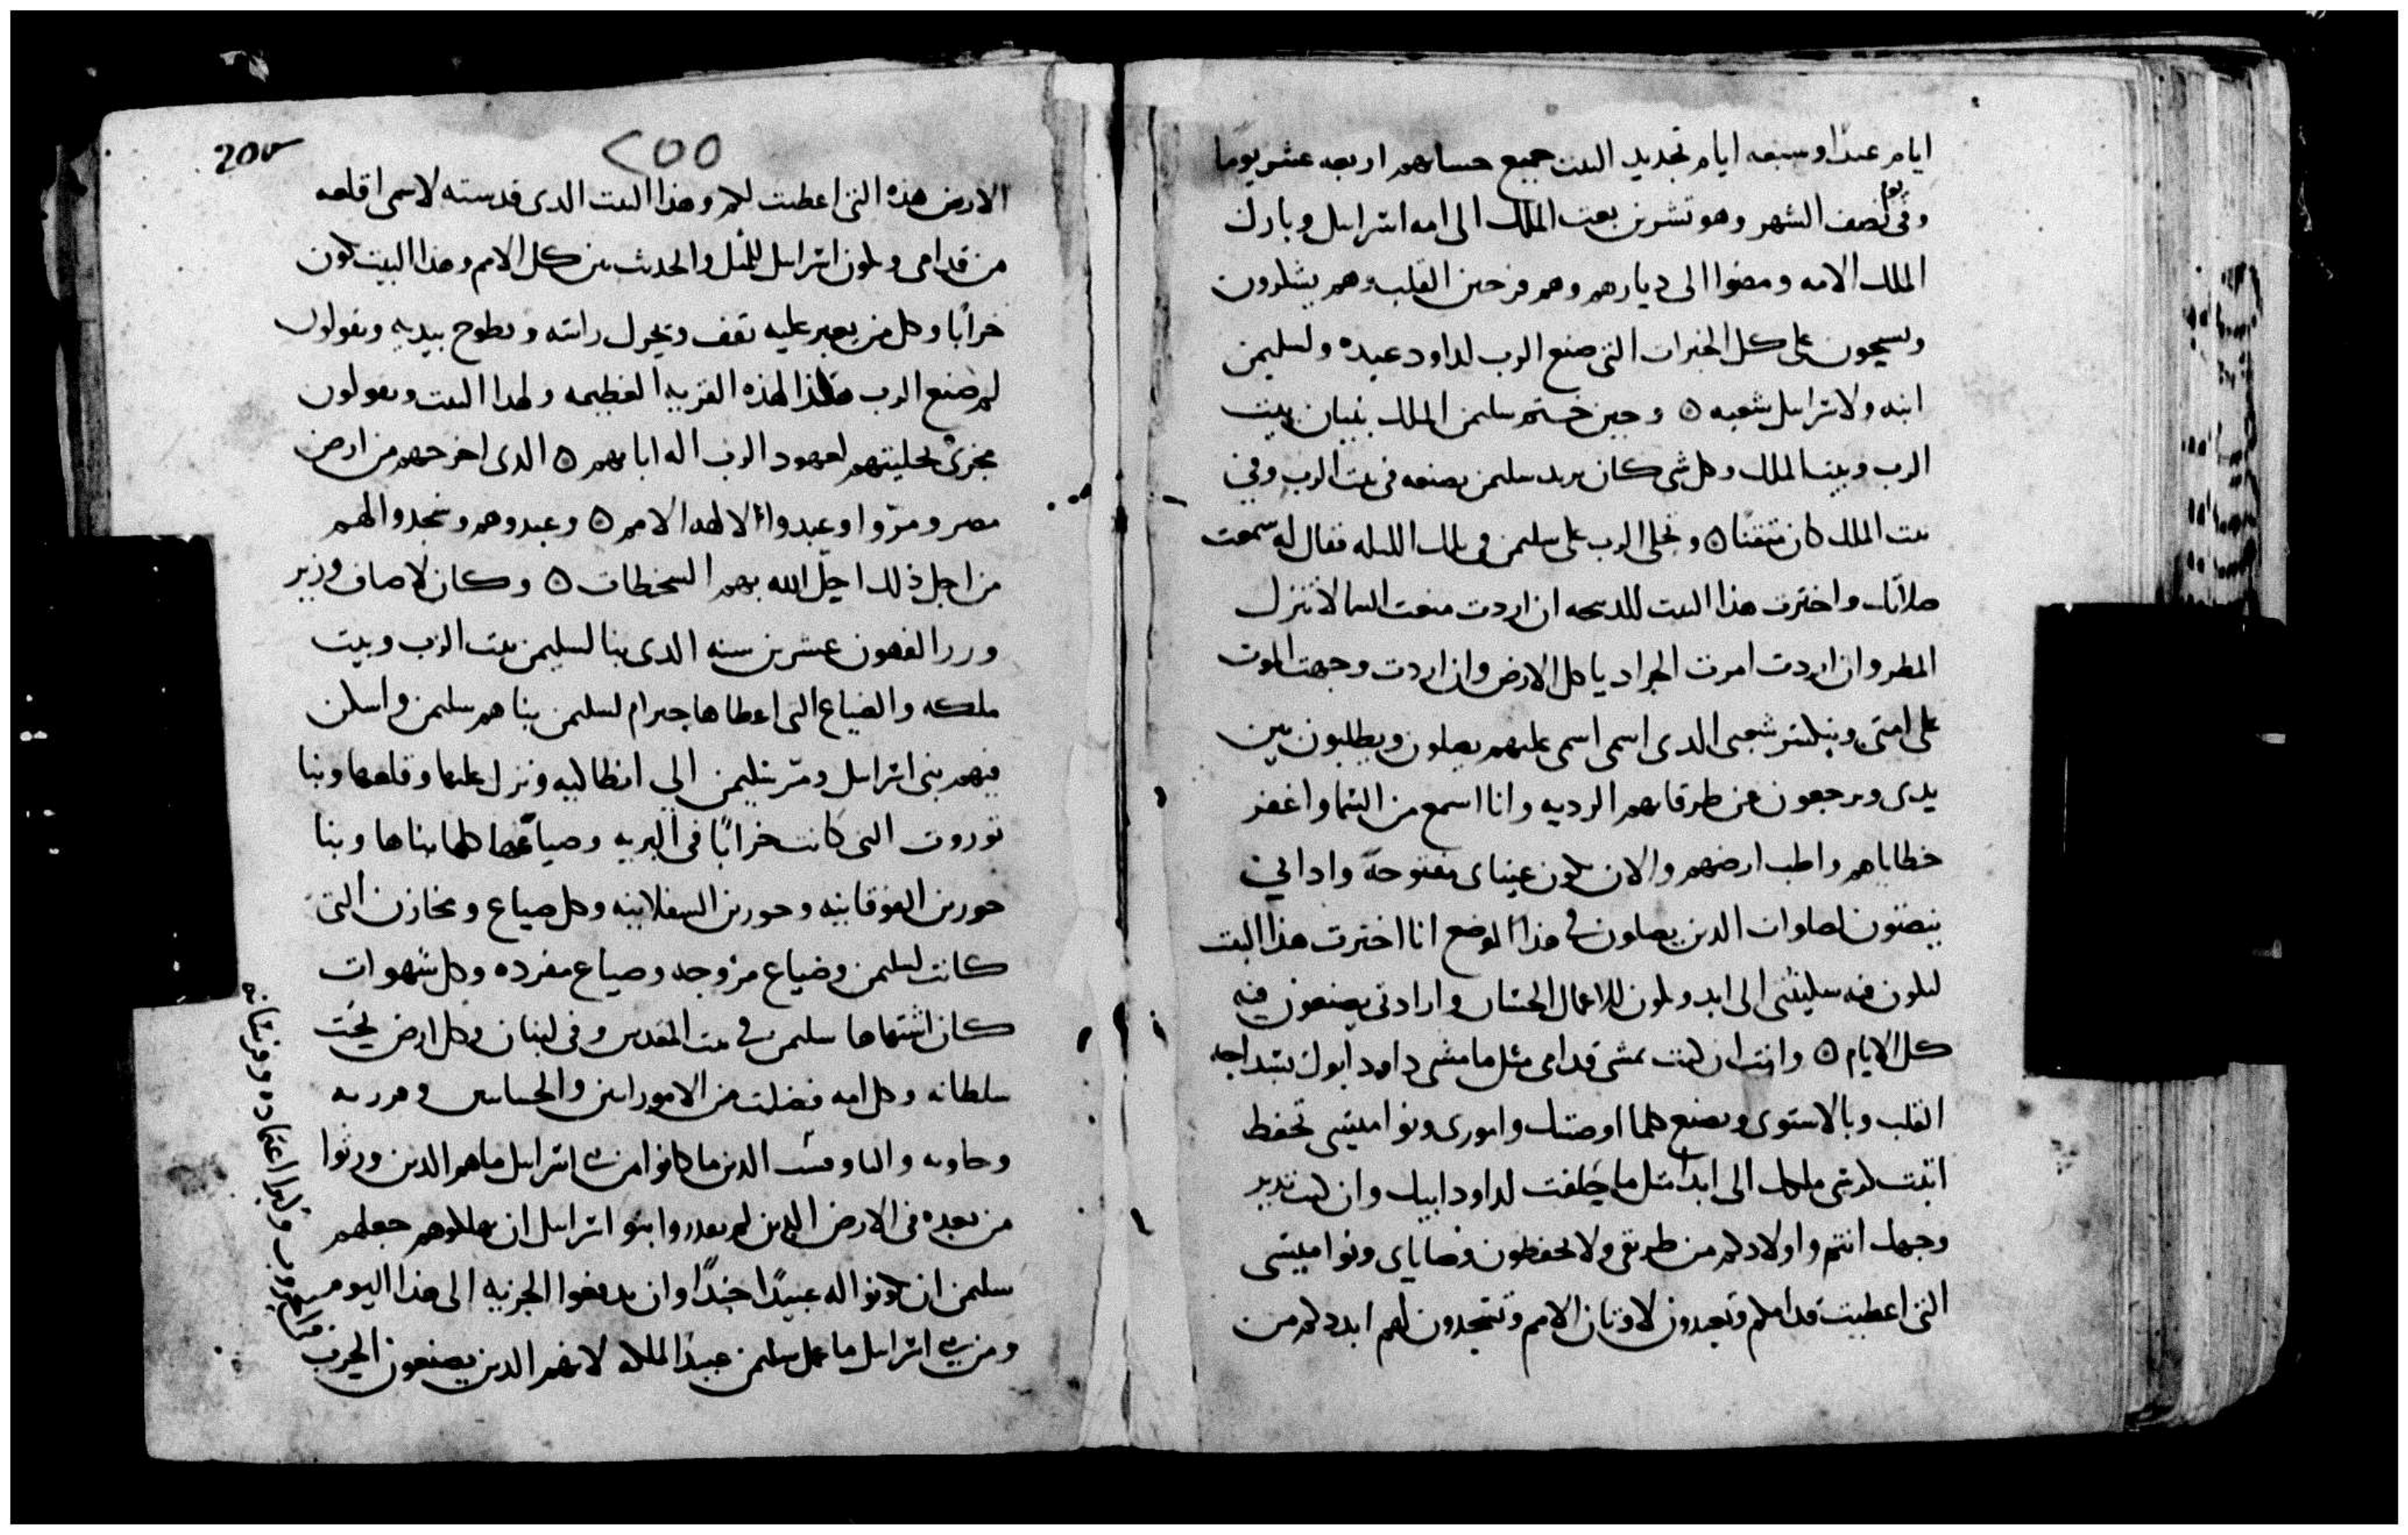 ايام عيدًا وسبعه ايام تجديد البيت جميع حسابهم اربعه عشر يومًا
وفي يوم نصف الشهر وهو تشرين بعث الملك الى امه اسراىيل وبارك
الملك الامه ومضوا الى ديارهم وهم فرحين القلب وهم يشكرون
ويسبحون على كل الخيرات التي صنع الرب لداود عبده ولسليمن
ابنه ولاسراىيل شعبه ۞ وحين ختم سليمن الملك بنيان بيت
الرب وبيت الملك وكل شي كان يريد سليمن يصنعه في بيت الرب وفي
بيت الملك كان متقنًا ۞ وتجلى الرب على سليمن في تلك الليله فقال له سمعت
صلاتك واخترت هذا البيت للذبيحه ان اردت منعت السما لا تنزل
المطر وان اردت امرت الجراد ياكل الارض وان اردت وجهت الموت
على امتي شعبي الذي اسمي اسمي عليهم يصلون ويطلبون بين
يدي ويرجعون عن طرقاتهم الرديه وانا اسمع من السما واغفر
خطاياهم واطيب ارضهم والان تكون عيناي مفتوحة واداني
ينصتون لصلوات الذين يصلون في هذا الموضع انا اخترت هذا البيت
ليكون فيه سكينتي الى ابد ويكون للاعمال الحسان وارادتي يصنعون فيه
كل الايام ۞ وانت ان كنت تمشي قدامي مثل ما مشى داود ابوك
القلب وبالاستوى وتصنع كلما اوصيتك واموري ونواميسي تحفظ
اثبت كرسي ملكك الى ابد مثل ما حلفت لداود ابيك وان كنت تدير
وجهك انتم واولادكم من طريقي ولا تحفظون وصاياي ونواميسي
التي اعطيت قدامكم وتعبدون لاوثان الامم وتسجدون لهم ابددكم من
200
٢٥٥
الارض هذه التي اعطيت لكم وهذا البيت الذي قدسته لاسمي اقلعه
من قدامي ويكون اسراىيل للمثل والحديث بين كل الامم وهذا البيت يكون
خرابًا وكل من يعبر عليه يقف ويحرك راسه ويطوح بيديه ويقولون
لم صنع الرب هكذا لهذه القريه العظيمه ولهذا البيت ويقولون
مجزى لعهود الرب اله ابايهم ۞ الذي اخرجهم من ارض
مصر ومروا وعبدوا الالهه الامم ۞ وعبدوهم وسجدوا لهم
من اجل ذلك احل الله بهم السخطات ۞ وكان لاصاف وزير
عشرين سنه الذي بنا لسليمن بيت الرب وبيت
ملكه والضياع التي اعطاها حيرام لسليمن بناهم سليمن واسكن
فيهم بني اسراىيل ومر سليمن الى انطاكيه ونزل عليها وقلعها وبنا
توروت التي كانت خرابًا في البريه وضياعها كلها بناها وبنا
حورين الفوقانيه وحورين السفلانيه وكل ضياع ومخازن التي
كانت لسليمن وضياع مزوجه وضياع مفرده وكل شهوات
كان اشتهاها سليمن في بيت المقدس وفي لبنان وكل ارض تحت
سلطانه وكل امه فضلت من الاموراىين والحيثانيين
الذين ما كانوا من بني اسراىيل ما هم الذين ورثوا
من بعده في الارض الذين لم يقدروا بنو اسراىيل ان يهلكوهم جعلهم
سليمن ان يكونوا له عبيدًا جندًا وان يدفعوا الجزيه الى هذا اليوم
ومن بني اسراىيل ما عمل سليمن عبيدًا للملك لانهم الذين يصنعون الحرب